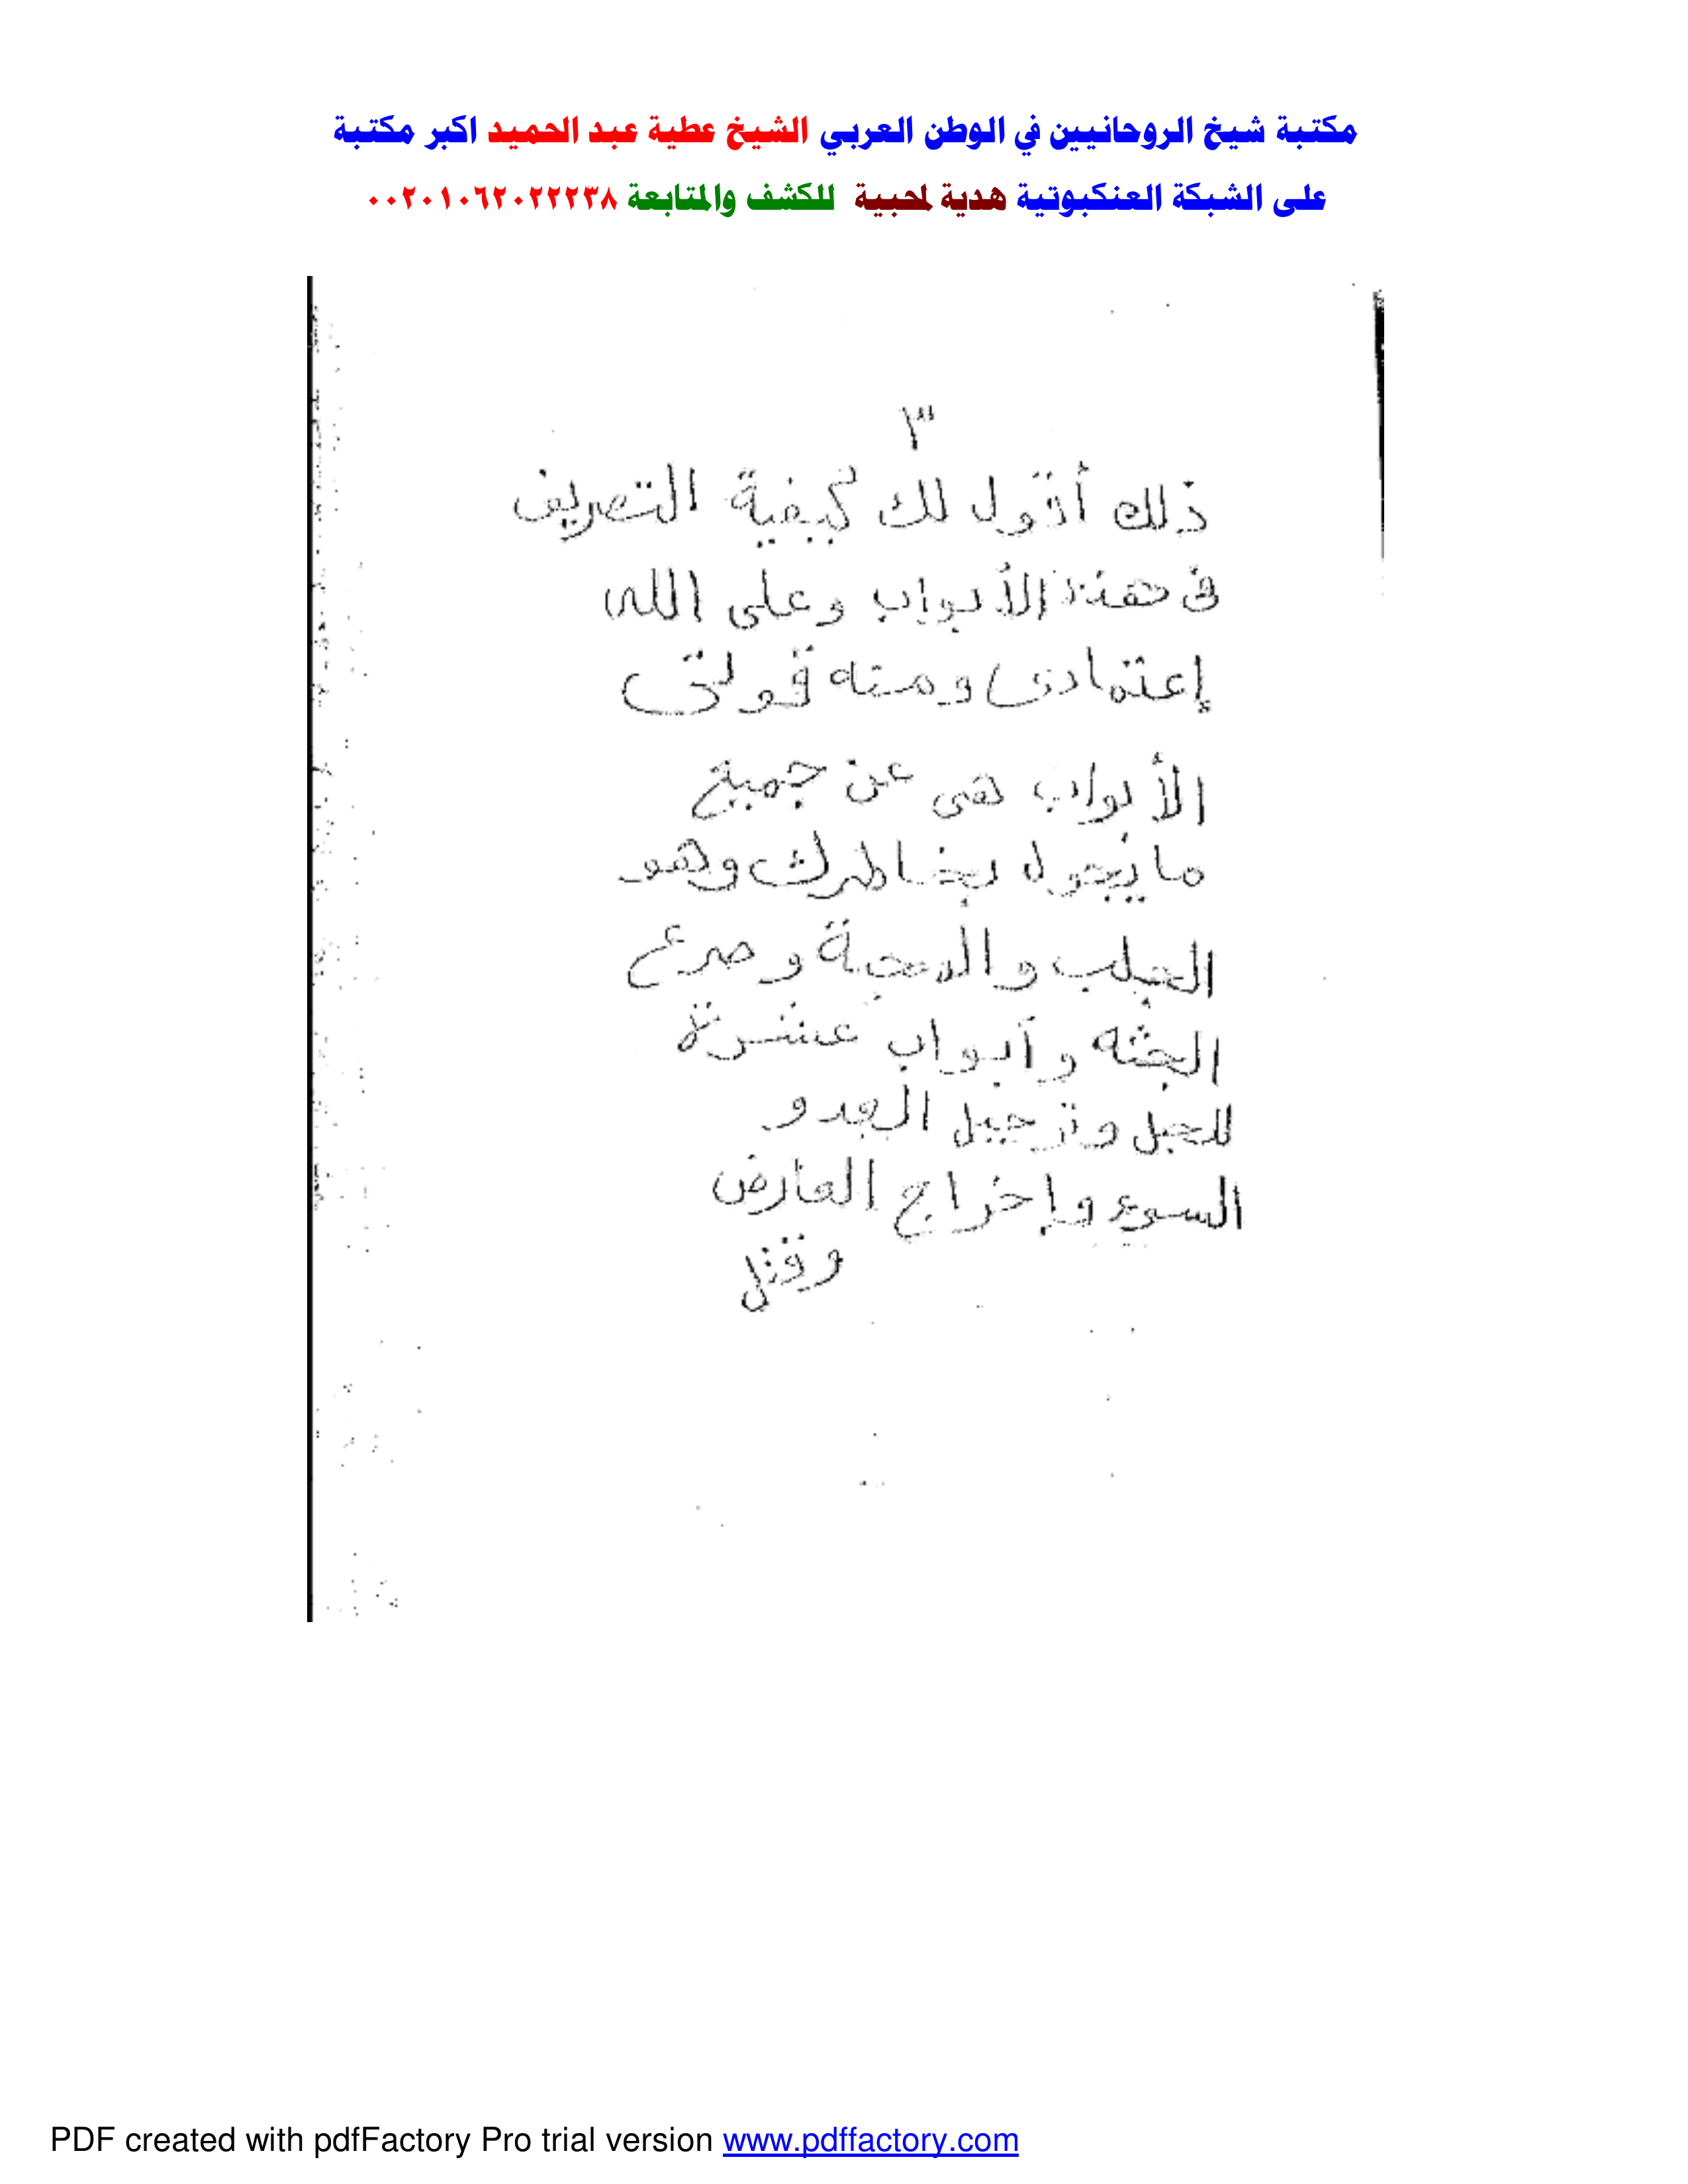 مكتبة شيخ الروحانيين في الوطن العربي الشيخ عطية عبد الحميد اكبر مكتبة
على الشبكة العنكبوتية هدية لمحبية للكشف والمتابعة ٠٠٢٠١٠٦٢٠٢٢٢٣٨
٣
ذلك أقول لك كيفية التصريف
فى هذه الأبواب وعلى الله
إعتمادى ومنه قولتى
الأبواب هى عن جميع
ما يجول بخاطرك وهو
الجلب والمحبة وصرع
الجثه وأبواب عشرة
للحبل وترحيل العدو
السوء وإخراج العارض
وقتل
PDF created with pdfFactory Pro trial version www.pdffactory.com